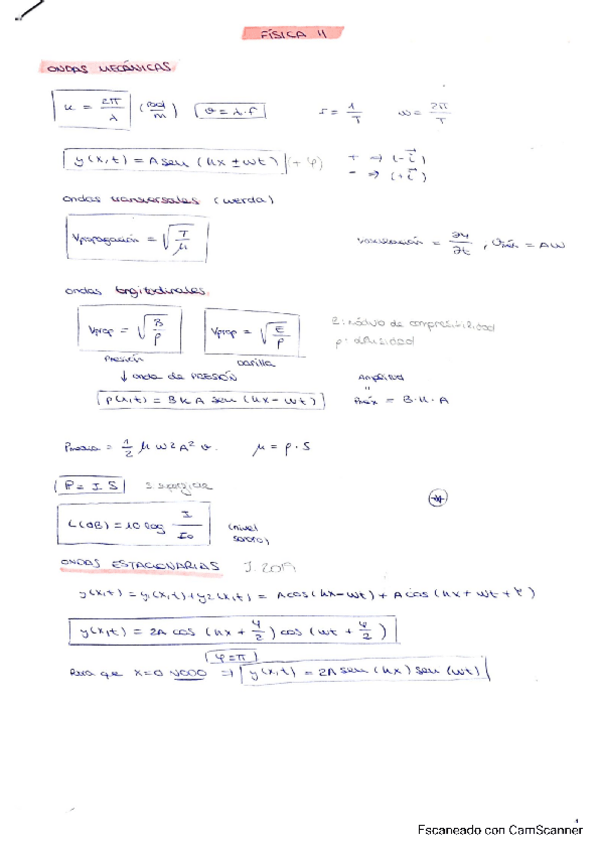 FÍSICA II
ONDAS MECÁNICAS
k = 2π/λ (rad/m) v = λ·f f = 1/T ω = 2π/T
y(x,t) = A sen (kx ± wt) (+ φ) + ⇒ (-i⃗)
- ⇒ (+i⃗)
ondas transversales (cuerda)
Vpropagación = √(T/μ) = ∂y/∂t , Vmáx = AW
ondas longitudinales
Vprop = √(B/ρ) Vprop = √(E/ρ) : módulo de compresibilidad
ρ: densidad
presión varilla
↓ onda de PRESIÓN Amplitud
"
p(x,t) = B k A sen (kx - wt) Pmáx = B·k·A
= 1/2 μ w2 A2 v. μ = ρ · S
P = I. S superficie
L(dB) = 10 log I/I0 (nivel
sonoro)
ONDAS ESTACIONARIAS J. 2019
y(x,t) = y1(x,t) + y2(x,t) = A cos(kx - wt) + A cos (kx + wt + φ)
y(x,t) = 2A cos (kx + φ/2) cos (wt + φ/2)
(φ=π)
Para que x=0 NODO ⇒ y(x,t) = 2A sen (kx) sen (wt)
1
Escaneado con CamScanner